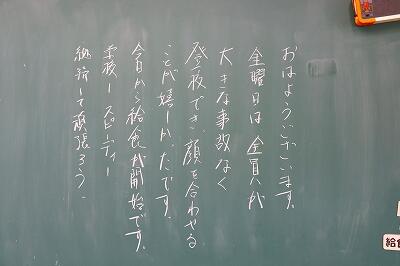 おはようございます。
金曜日は全員が
大きな事故なく
登校でき、顔を合わせる
ことが嬉しかったです。
今日から給食が開始です。
学校1スピーディー
して頑張ろう。
給